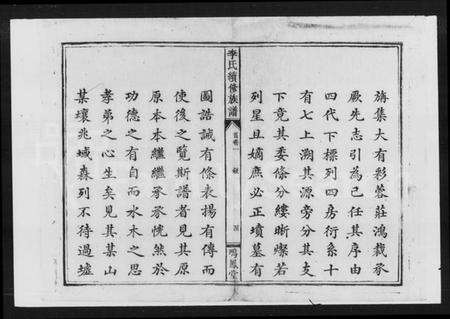 旃集大有彩蓉莊鴻裁承
厥先志引為己任其序由
四代下標列四房衍系十
有七上溯其源旁分其支
下竟其委條分縷晰燦若
列星且嫡庶必正墳墓有
李氏續修族譜
首卷一
四
鳴鳳堂
圖誥誡有條表揚有傳而
使後之覽斯譜者見其原
原本本繼繼承承恍然於
功德之有自而水木之思
孝弟之心生矣見其某山
某壤兆域森列不待過墟